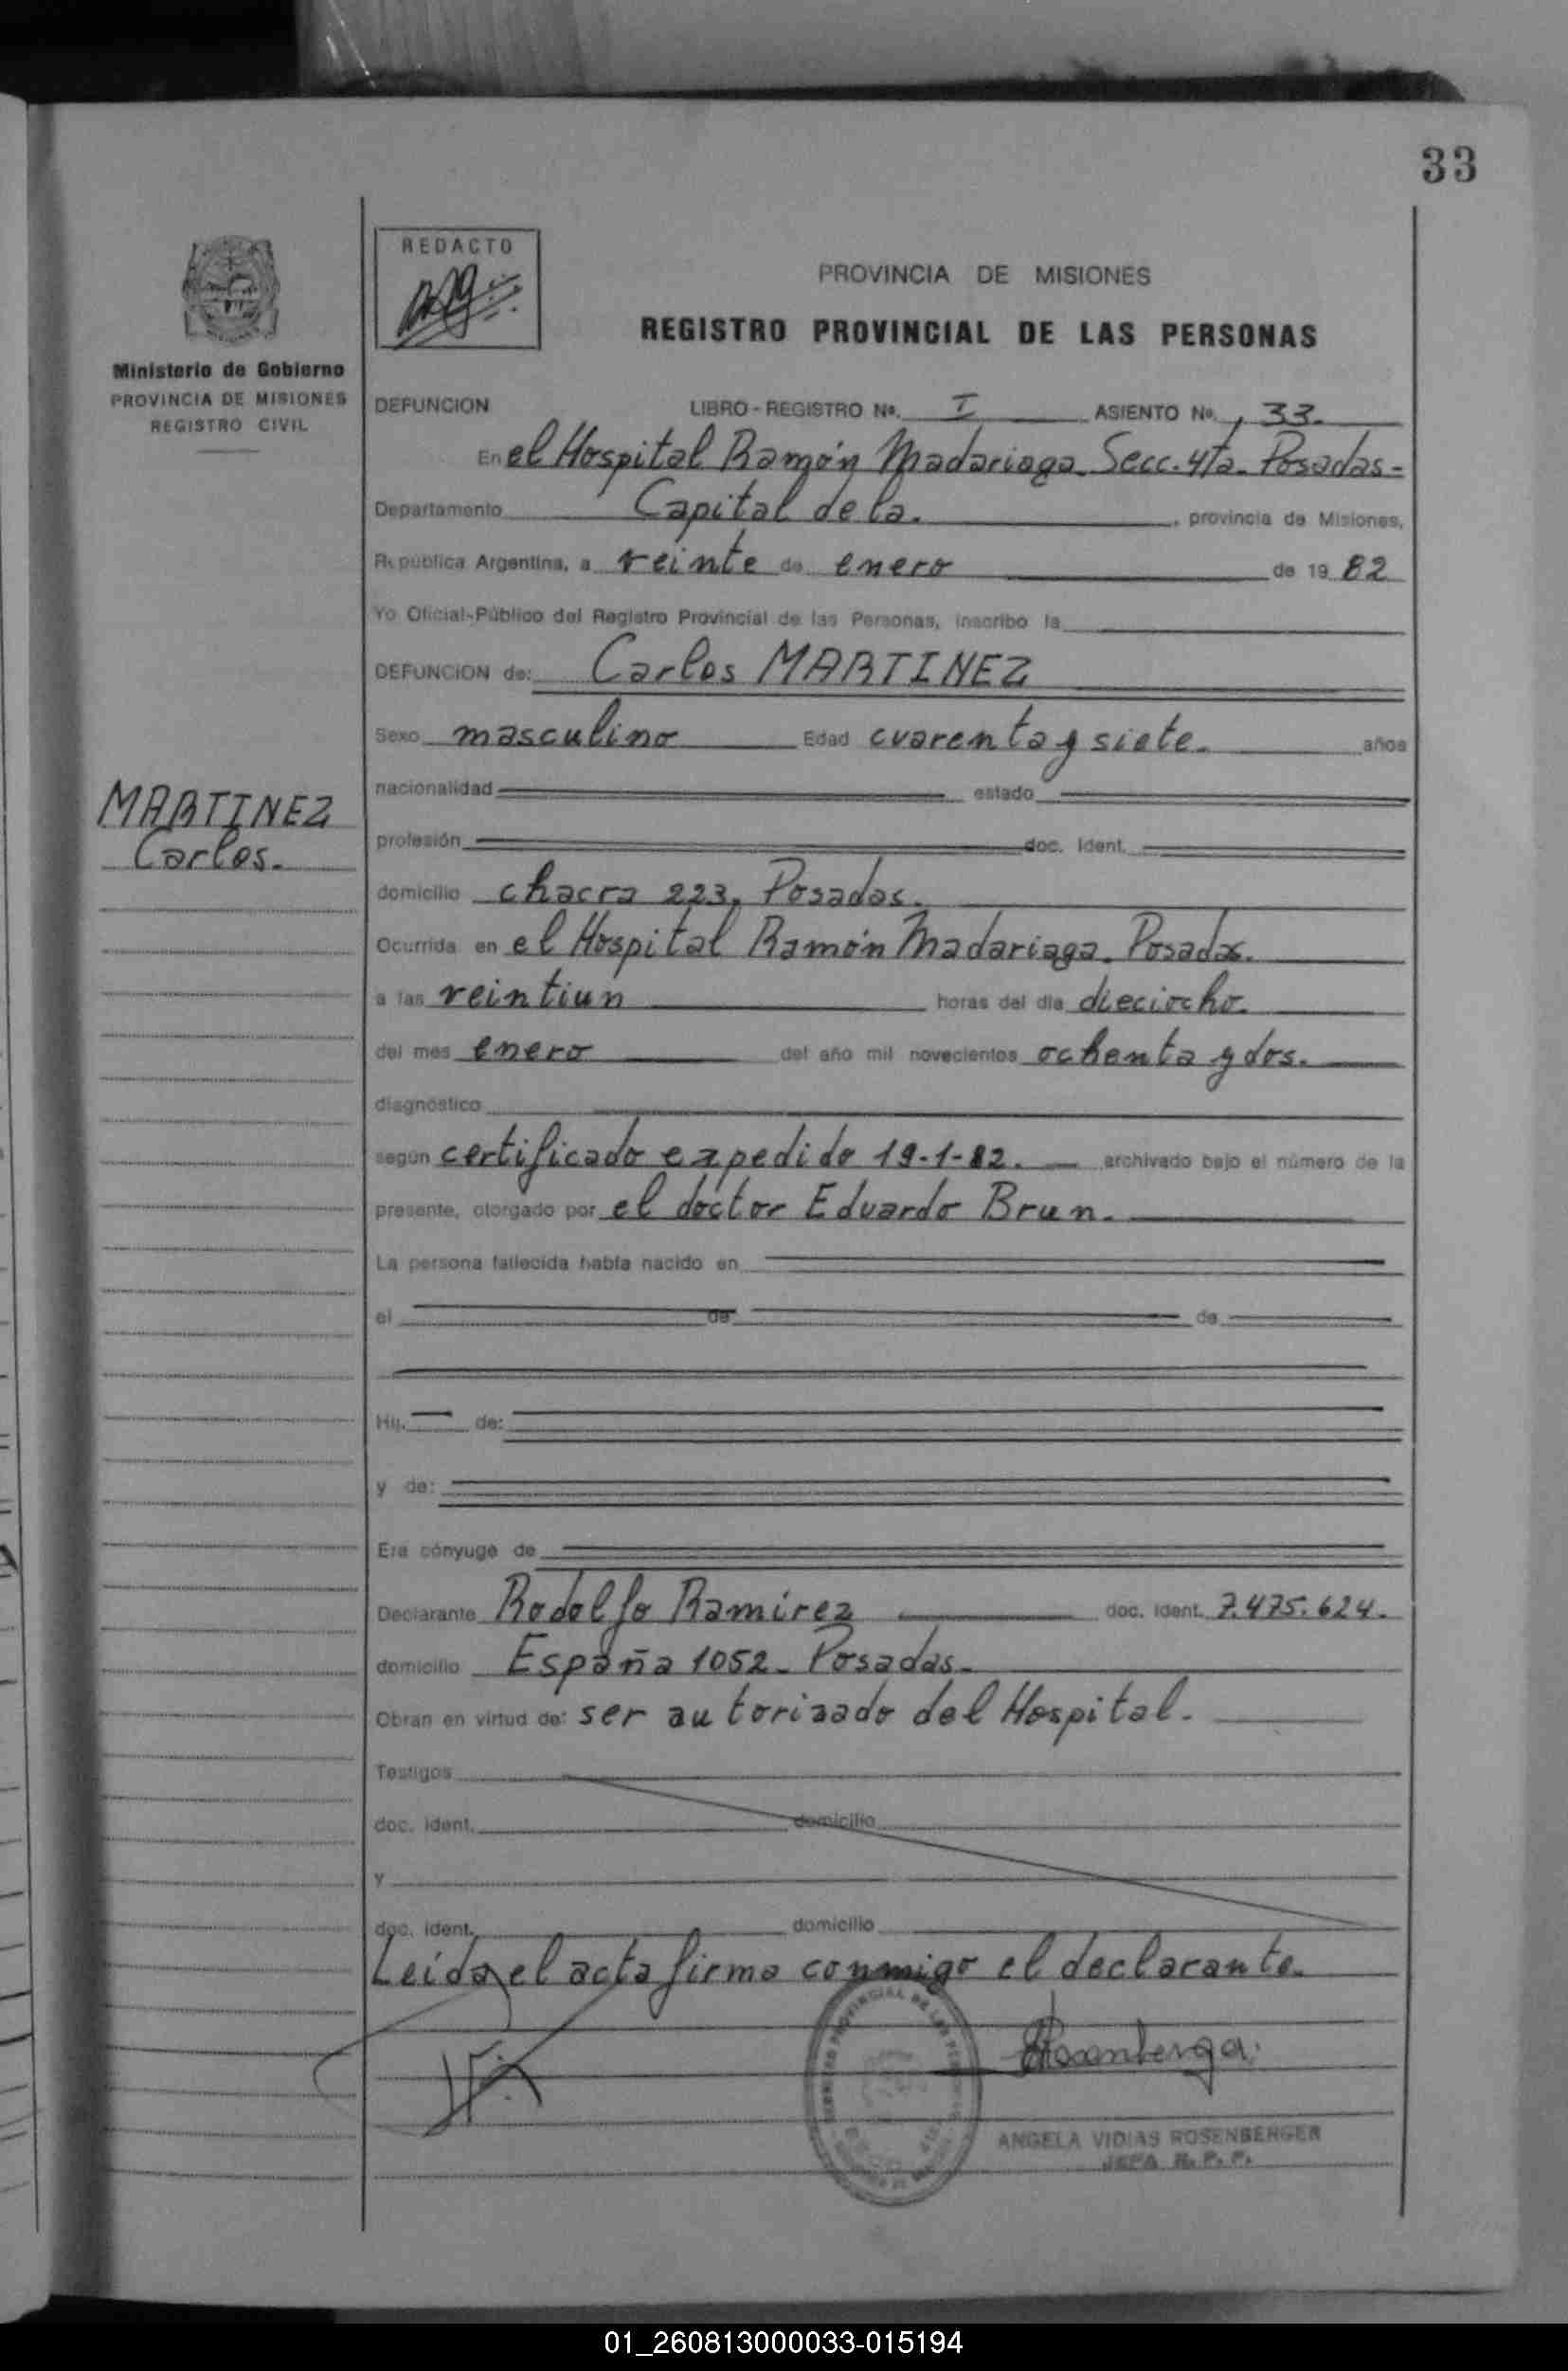 33
REDACTO
PROVINCIA DE MISIONES
REGISTRO PROVINCIAL DE LAS PERSONAS
Ministerio de Gobierno
PROVINCIA DE MISIONES
REGISTRO CIVIL
DEFUNCION LIBRO - REGISTRO Nº. I ASIENTO Nº. 33.
En el Hospital Ramón Madariaga Secc. 4ta. Posadas-
Departamento Capital de la. , provincia de Misiones,
República Argentina, a veinte de enero de 19 82
Yo Oficial-Público del Registro Provincial de las Personas, inscribo la
DEFUNCION de: Carlos MARTINEZ
Sexo masculino Edad cuarenta y siete. años
nacionalidad estado
MARTINEZ
Carlos.
profesión doc. Ident.
domicilio chacra 223, Posadas.
Ocurrida en el Hospital Ramón Madariaga. Posadas.
a las veintiun horas del día dieciocho.
del mes enero del año mil novecientos ochenta y dos.
diagnóstico
según certificado expedido 19-1-82. archivado bajo el número de la
presente, otorgado por el doctor Eduardo Brun.
La persona fallecida había nacido en
el de de
Hij. de:
y de:
Era cónyuge de
Declarante Rodolfo Ramirez doc. Ident. 7.475.624.
domicilio España 1052 - Posadas-
Obran en virtud de: ser autorizado del Hospital.
Testigos
doc. Ident. domicilio
y
doc. ident. domicilio
Leida el acta firma conmigo el declarante.
ANGELA VIDIAS ROSENBERGER
JEFA R. P. P.
01_260813000033-015194